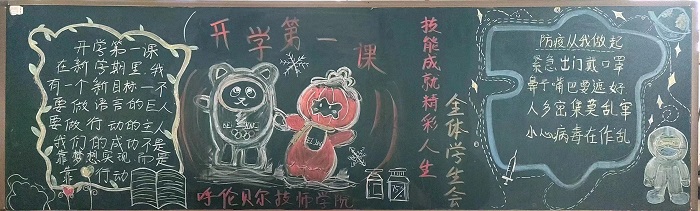 开学第一课
在新学期里,我
有一个新目标一不
要做语言的巨人
要做行动的主人
我们的成功不是
靠梦想实现,而是
靠行动
开学第一课
BEIJING
BEIJING
呼伦贝尔技师学院
技能成就精彩人生
全体学生会
防疫从我做起
紧急出门戴口罩
鼻子嘴巴要遮好
人多密集莫乱窜
小心病毒在作乱